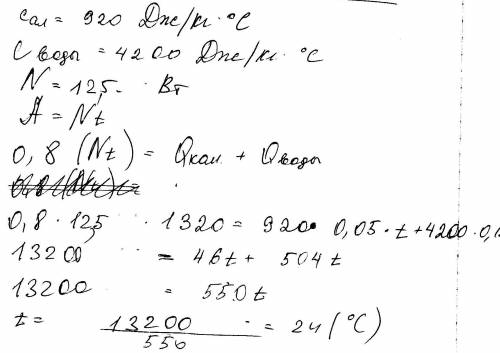 Cал = 920 Дж/кг · °C
C воды = 4200 Дж/кг · °C
N = 12,5 · Вт
A = Nt
0,8 (Nt) = Qкал + Qводы
0,8 · 12,5 · 1320 = 920 · 0,05 · t + 4200 · 0,1
13200 = 46t + 504t
13200 = 550t
t = 13200 / 550 = 24 (°C)